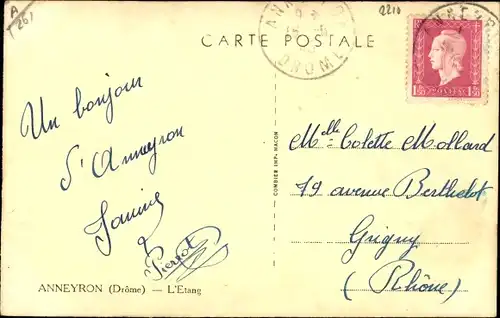 A
261
2210
CARTE POSTALE
ANNEYRON
DROME
1F50 POSTES 1F50
Un bonjour
d'Anneyron
Janine
Pierrot
Melle Colette Mollard
19 avenue Berthelot
Grigny
(Rhône)
COMBIER IMP. MACON
ANNEYRON (Drôme) — L'Etang